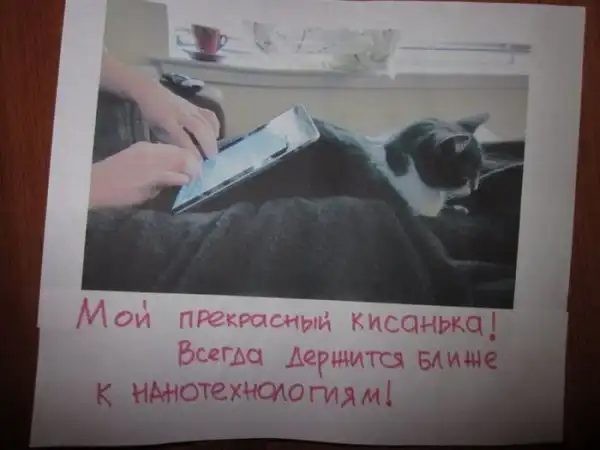 Мой прекрасный кисанька!
Всегда держится ближе
к нанотехнологиям!